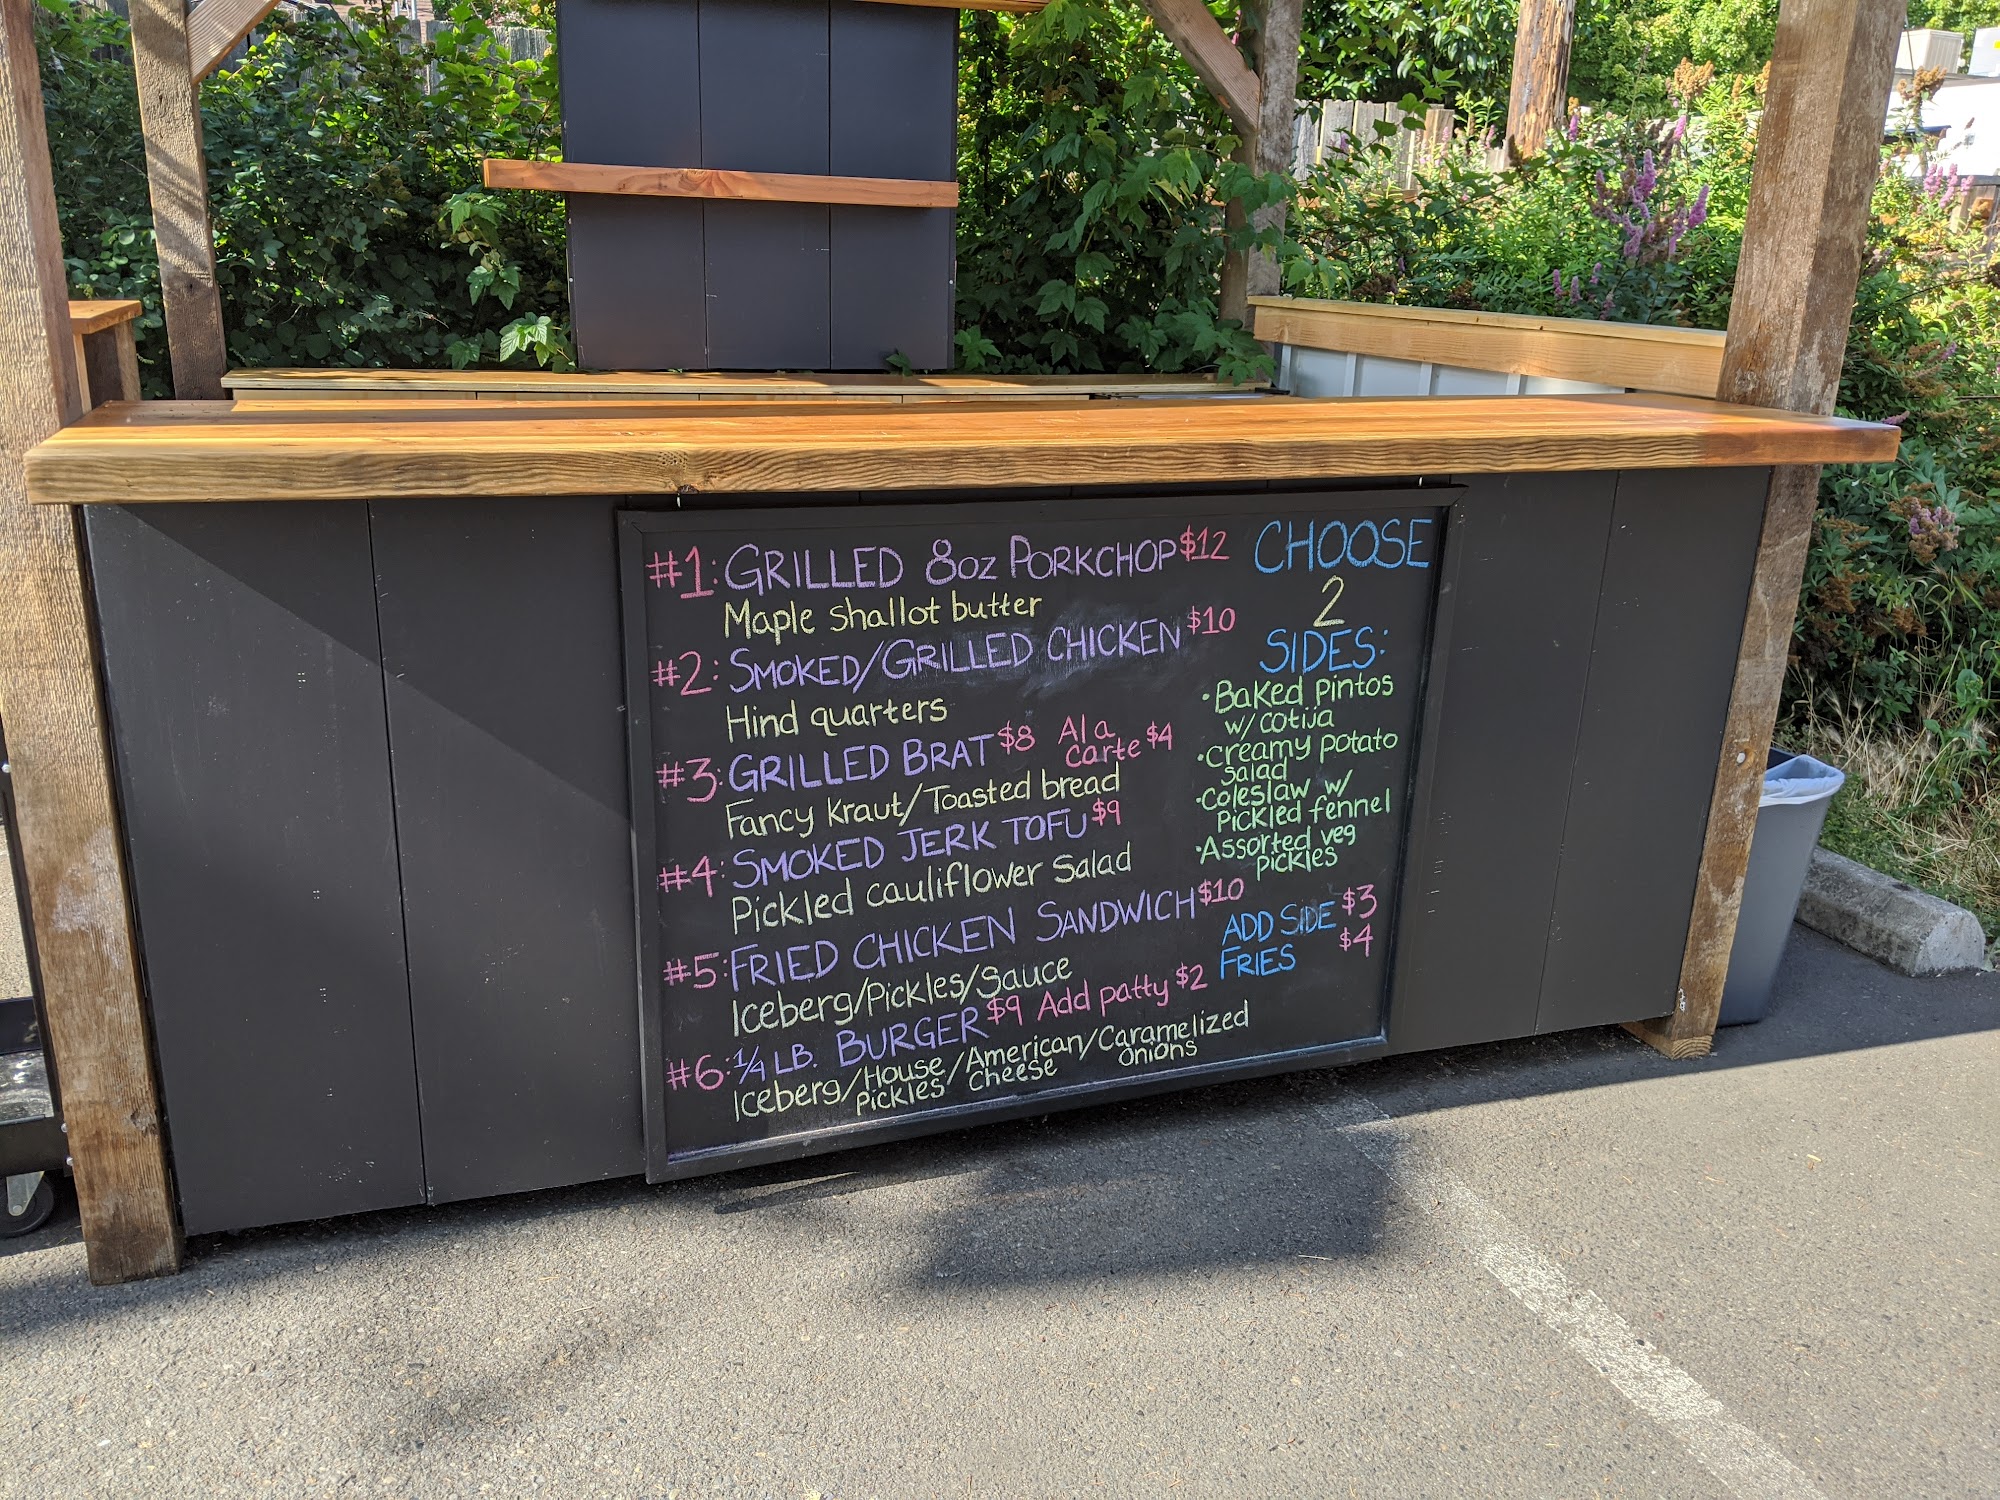 #1: GRILLED 8oz PORKCHOP $12
Maple shallot butter
#2: SMOKED/GRILLED CHICKEN $10
Hind quarters
#3: GRILLED BRAT $8 Al a carte $4
Fancy Kraut/Toasted bread
#4: SMOKED JERK TOFU $9
Pickled cauliflower Salad
#5: FRIED CHICKEN SANDWICH $10
Iceberg/Pickles/Sauce
#6: 1/4 LB. BURGER $9 Add patty $2
Iceberg/House Pickles/American Cheese/Caramelized Onions
CHOOSE
2
SIDES:
• Baked pintos
w/ cotija
• creamy potato
salad
• Coleslaw w/
Pickled fennel
• Assorted veg
pickles
ADD SIDE $3
FRIES $4